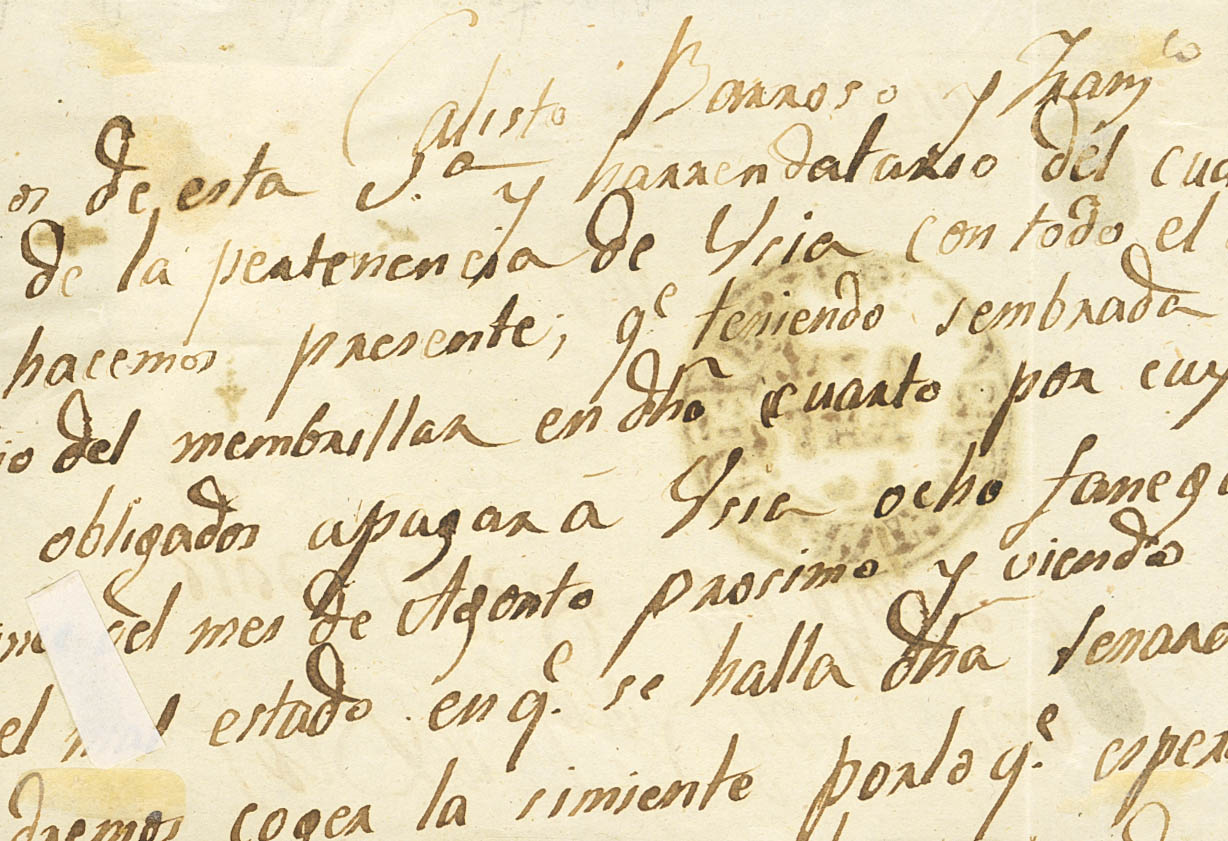 Calisto Barroso y Framco
os de esta J.a y harrendatario del cua
de la pertenencia de Ysia con todo el
hacemos presente; q.e teniendo sembrada
io del membrillar en dho cuarto por cuy
obligados apagar á Ysia ocho faneg
del mes de Agosto prosimo y viendo
el mal estado en q.e se halla dha senar
dremos coger la simiente porlo q.e esper